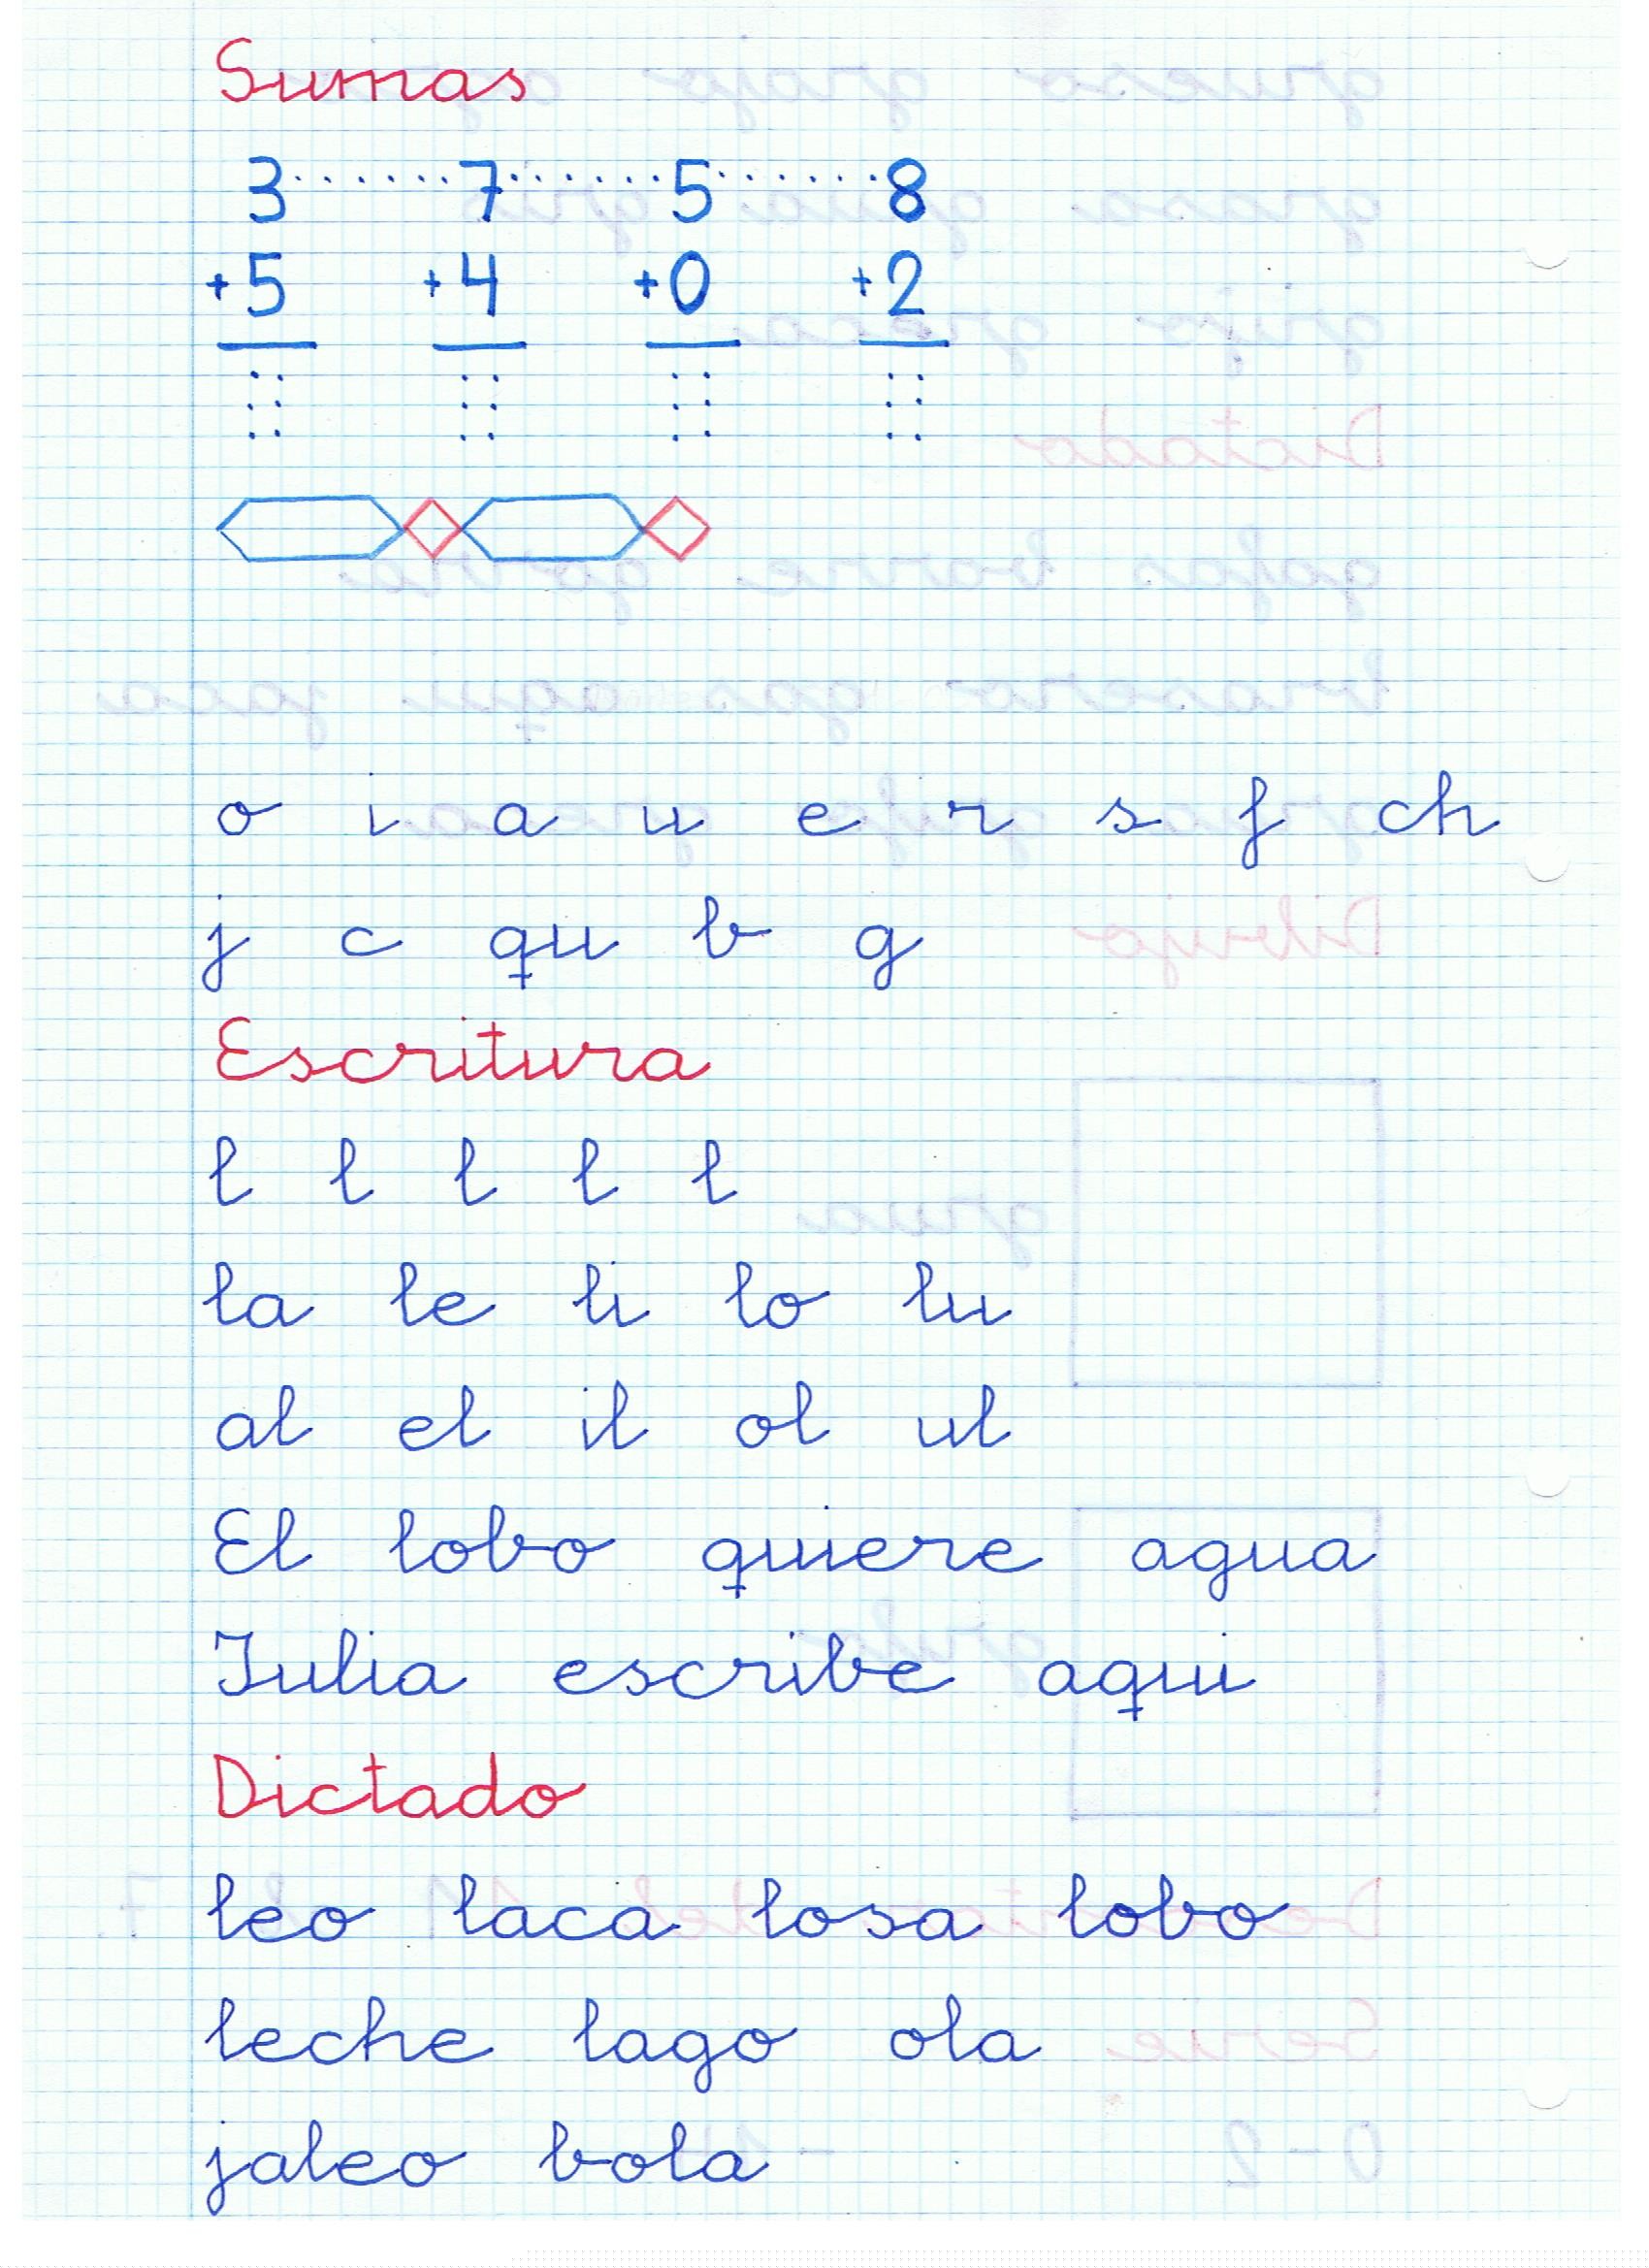 Sumas
3 7 5 8
+5 +4 +0 +2
o i a u e r s f ch
j c qu b g
Escritura
l l l l l
la le li lo lu
al el il ol ul
El lobo quiere agua
Julia escribe aqui
Dictado
leo laca losa lobo
leche lago ola
jaleo bola